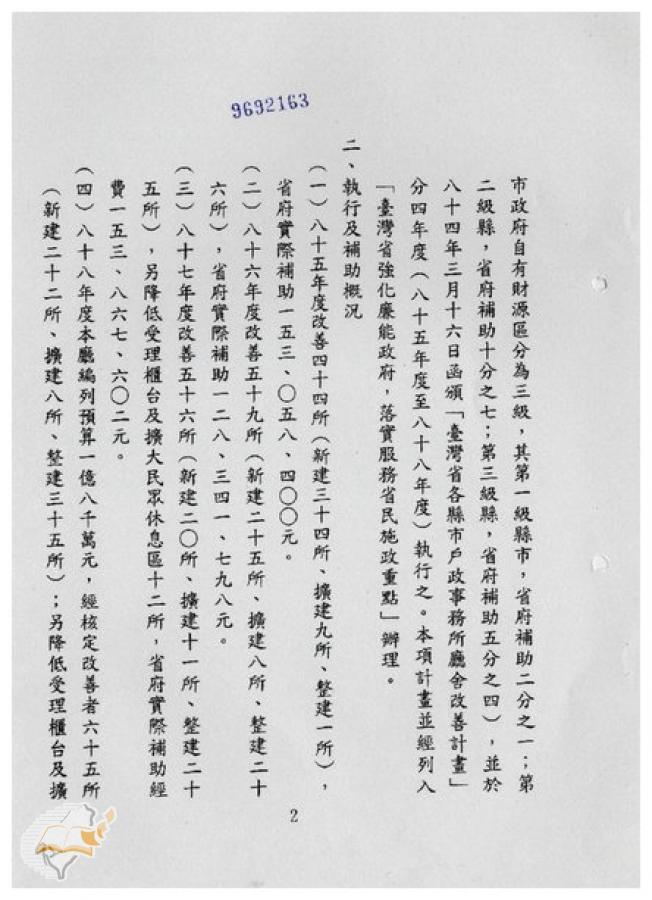 9692163
市政府自有財源區分為三級，其第一級縣市，省府補助二分之一；第
二級縣，省府補助十分之七；第三級縣，省府補助五分之四），並於
八十四年三月十六日函頒「臺灣省各縣市戶政事務所廳舍改善計畫」
分四年度（八十五年度至八十八年度）執行之。本項計畫並經列入
「臺灣省強化廉能政府，落實服務省民施政重點」辦理。
二、執行及補助概況
（一）八十五年度改善四十四所（新建三十四所、擴建九所、整建一所），
省府實際補助一五三、〇五八、四〇〇元。
（二）八十六年度改善五十九所（新建二十五所、擴建八所、整建二十
六所），省府實際補助一二八、三四一、七九八元。
（三）八十七年度改善五十六所（新建二〇所、擴建十一所、整建二十
五所），另降低受理櫃台及擴大民眾休息區十二所，省府實際補助經
費一五三、八六七、六〇二元。
（四）八十八年度本廳編列預算一億八千萬元，經核定改善者六十五所
（新建二十二所、擴建八所、整建三十五所）；另降低受理櫃台及擴
2